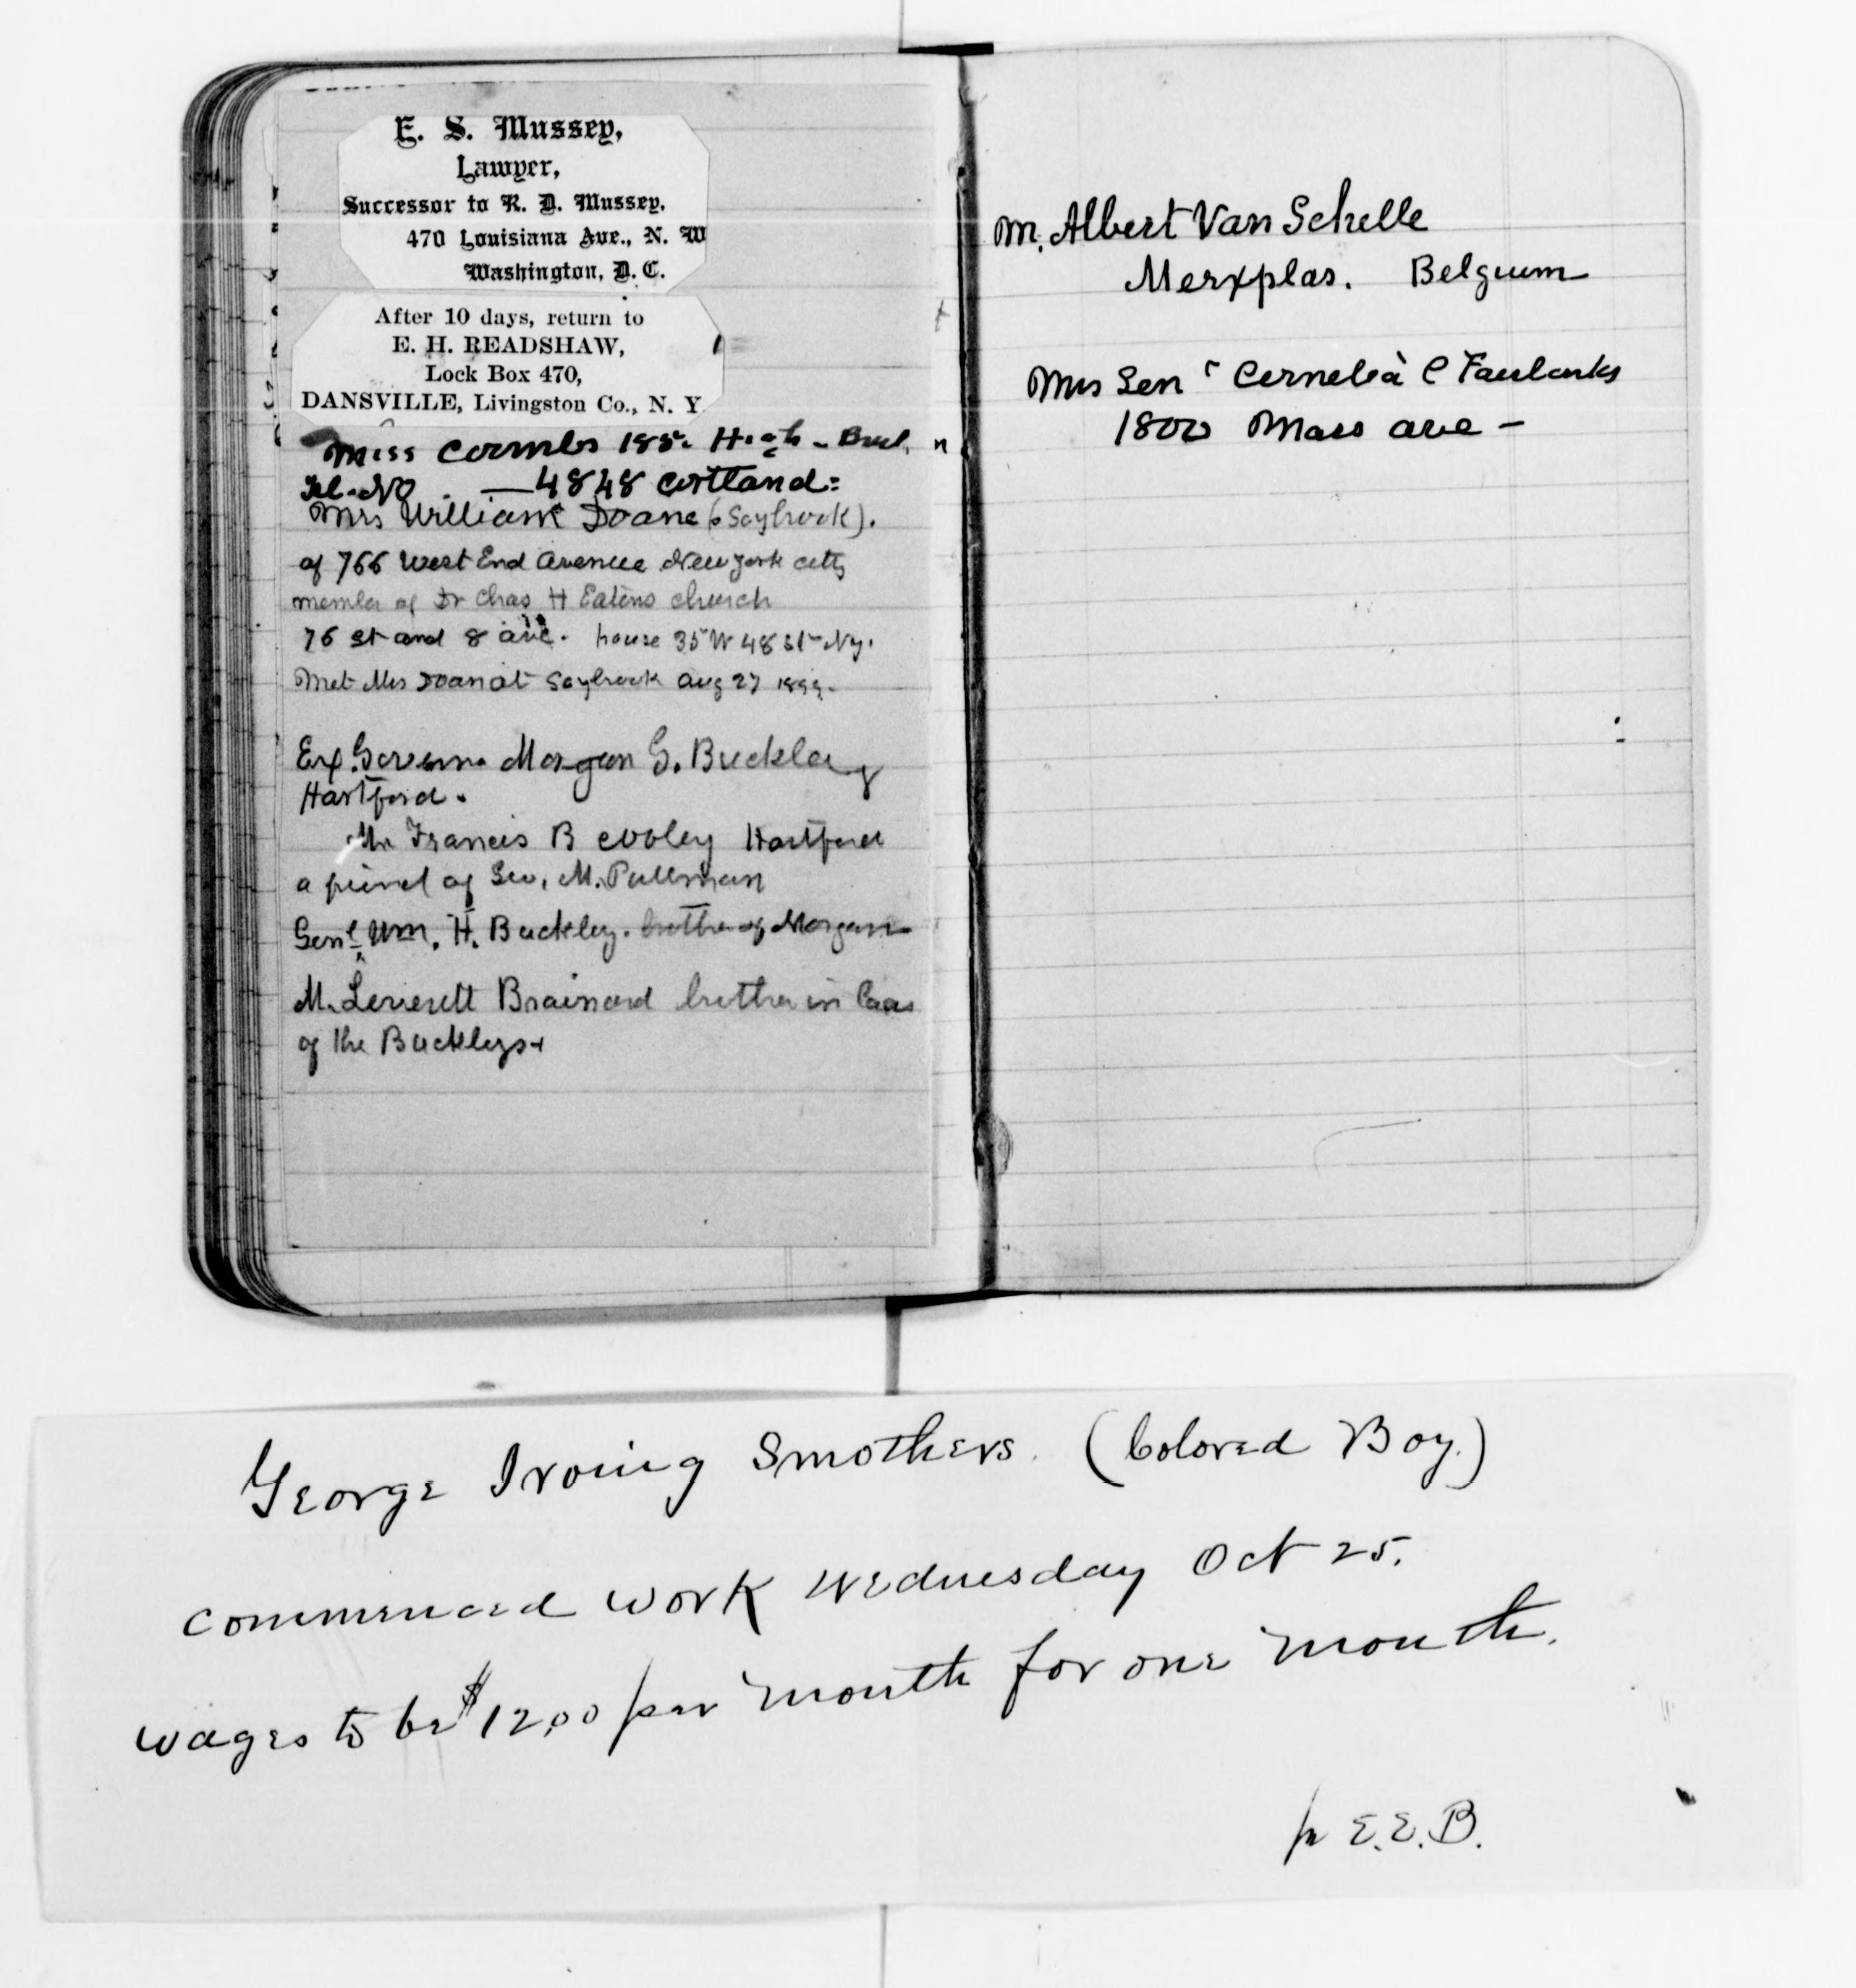 E. S. Mussey,
Lawyer,
Successor to R. D. Mussey.
470 Louisiana Ave., N. W
Washington, D. C.
After 10 days, return to
E. H. READSHAW,
Lock Box 470,
DANSVILLE, Livingston Co., N. Y.
Miss Coombs 185. High -
Tel. No. — 4848 Cortland =
Mrs William Doane (Saybrook).
of 766 West End Avenue New York city
member of Dr Chas H Eatons church
76 st and 8 ave. house 35 W 48 st - Ny.
Met Mrs Doan at Saybrook Aug 27 1899.
Ex. Governor Morgan G. Buckley
Hartford.
Mr Francis B Cooley Hartford
a friend of Geo. M. Pullman
Genl Wm. H. Buckley. brother of Morgan
M. Leverett Brainard brother in law
of the Buckleys
M. Albert Van Schelle
Merxplas. Belgium
Mrs Sen r Cornelia C Fairbanks
1800 Mass ave -
George Irving Smothers. (Colored Boy.)
commenced work Wednesday Oct 25.
wages to be $12.00 per month for one month.
pr E.E.B.